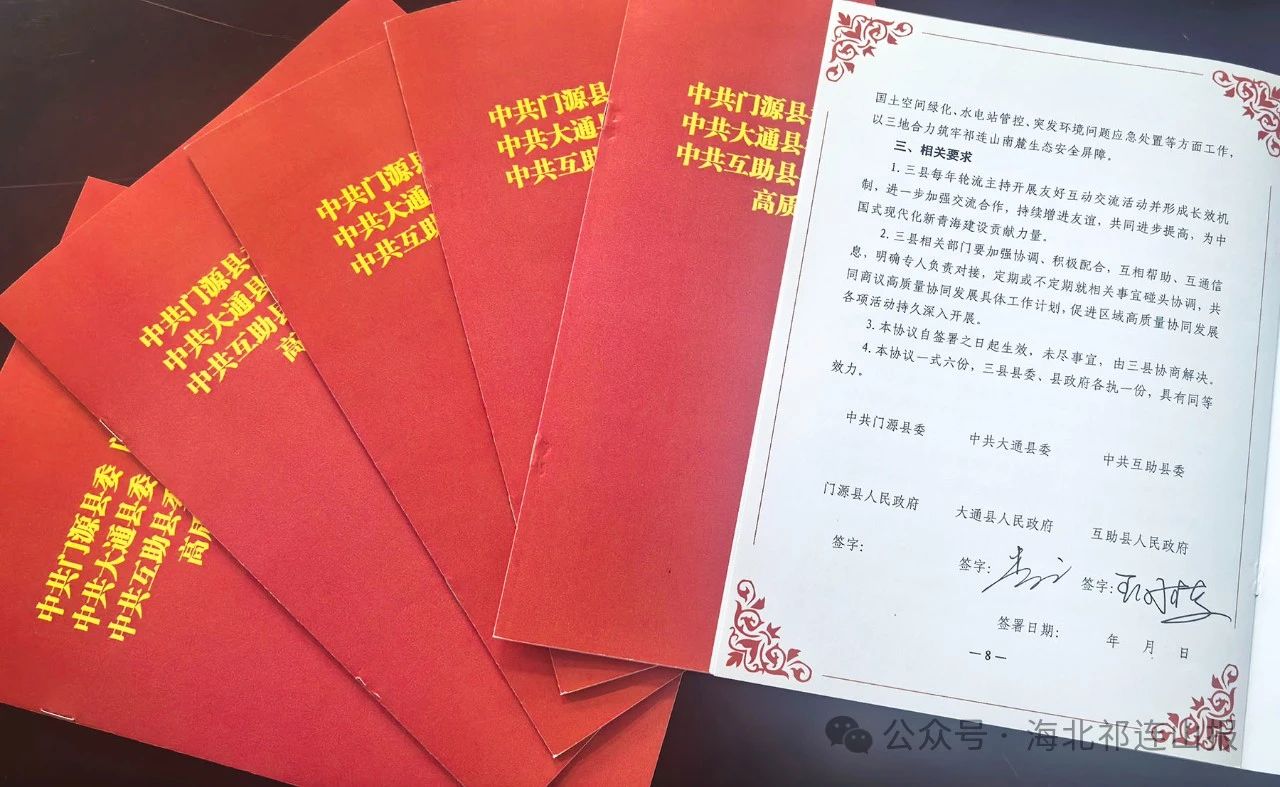 中共门源县委
中共大通县委
中共互助县委
高质
中共门源县
中共大通县
中共互助县
高
中共门源县
中共大通
中共互助
中共门源县
中共大通县
中共互助
中共门源县
中共大通县
中共互助县
高质
国土空间绿化、水电站管控、突发环境问题应急处置等方面工作，
以三地合力筑牢祁连山南麓生态安全屏障。
三、相关要求
1. 三县每年轮流主持开展友好互动交流活动并形成长效机
制，进一步加强交流合作，持续增进友谊，共同进步提高，为中
国式现代化新青海建设贡献力量。
2. 三县相关部门要加强协调、积极配合，互相帮助、互通信
息，明确专人负责对接，定期或不定期就相关事宜碰头协调，共
同商议高质量协同发展具体工作计划，促进区域高质量协同发展
各项活动持久深入开展。
3. 本协议自签署之日起生效，未尽事宜，由三县协商解决。
4. 本协议一式六份，三县县委、县政府各执一份，具有同等
效力。
中共门源县委 中共大通县委 中共互助县委
门源县人民政府 大通县人民政府 互助县人民政府
签字： 签字： 签字：
签署日期： 年 月 日
—8—
公众号·海北祁连山报